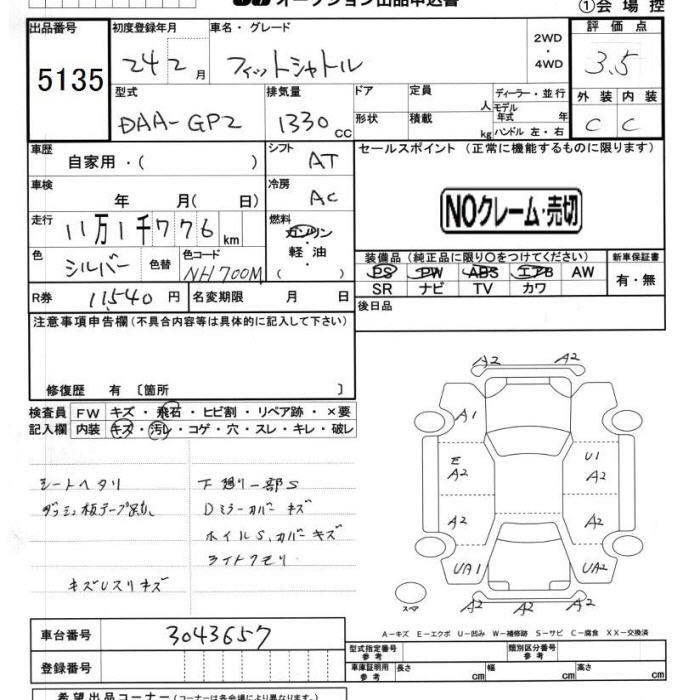 オークション出品申込書
①会場控
出品番号 初度登録年月 車名・グレード 2WD ・ 4WD 評価点
5135 24 2月 フィットシャトル 3.5
型式 排気量 ドア 定員 人 ディーラー・並行 外装 内装
DAA-GP2 1330 CC 形状 積載 kg モデル年式 年 ハンドル 左・右 C C
車歴 自家用・( ) シフト AT セールスポイント (正常に機能するものに限ります)
車検 年 月( 日) 冷房 AC
NOクレーム・売切
走行 11万1千776 km 燃料 ガソリン 軽油 ( )
色 シルバー 色替 色コード NH700M
装備品 (純正品に限り○をつけてください) 新車保証書
PS PW ABS エアB AW 有・無
SR ナビ TV カワ
R券 11,540 円 名変期限 月 日 後日品
注意事項申告欄(不具合内容等は具体的に記入して下さい)
修復歴 有 〔箇所 〕
検査員 FW キズ・飛石・ヒビ割・リペア跡・×要
記入欄 内装 キズ・汚レ・コゲ・穴・スレ・キレ・破レ
シートヘタリ 下廻り一部S
Dミラーカバーキズ
ホイルS、カバーキズ
ライトクモリ
キズUスリキズ
A2 A2
A1
E U1
A2 A2
A2 A2
UA1 UA2
A2 A2 A2
スペア
A-キズ E-エクボ U-凹み W-補修跡 S-サビ C-腐食 XX-交換済
車台番号 3043657
型式指定番号 参考 類別区分番号 参考
登録番号 車庫証明用 参考 長さ cm 幅 cm 高さ cm
希望出品コーナー(コーナーは各会場により異なります。)